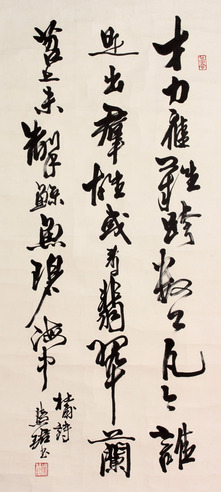 才力應難跨數公凡今誰
是出羣雄或看翡翠蘭
苕上未掣鯨魚碧海中
杜甫詩